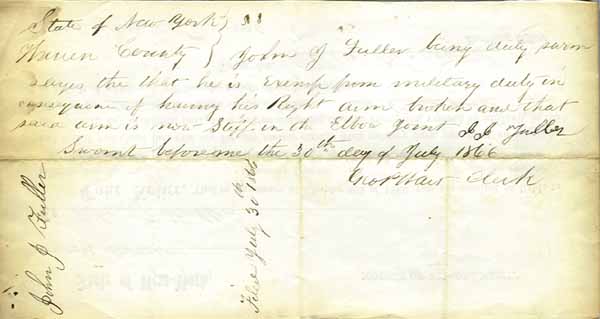 State of New York } SS
Warren County } John J Fuller being duly sworn
sayes the that he is Exemp from military duty in
consequence of having his Right arm broken and that
said arm is now Stiff in the Elbow Joint J J Fuller
Sworn before me the 30th day of July 1866
Clerk
John J Fuller
Filed July 30th 1866